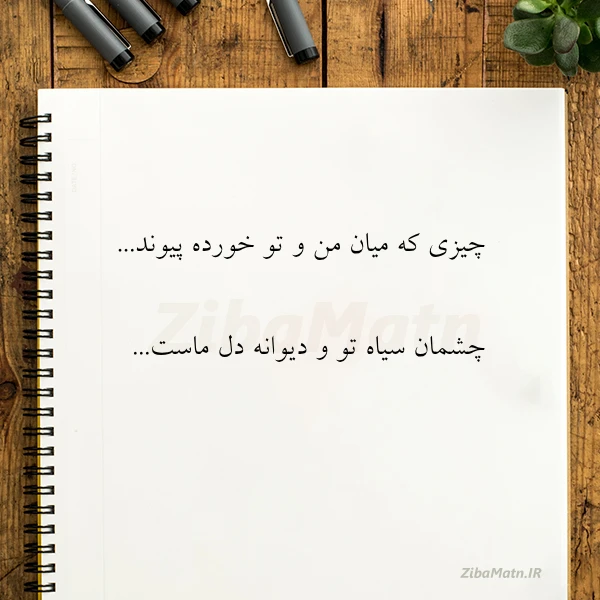 چیزی که میان من و تو خورده پیوند...
ZibaMatn
چشمان سیاه تو و دیوانه دل ماست...
ZibaMatn.IR